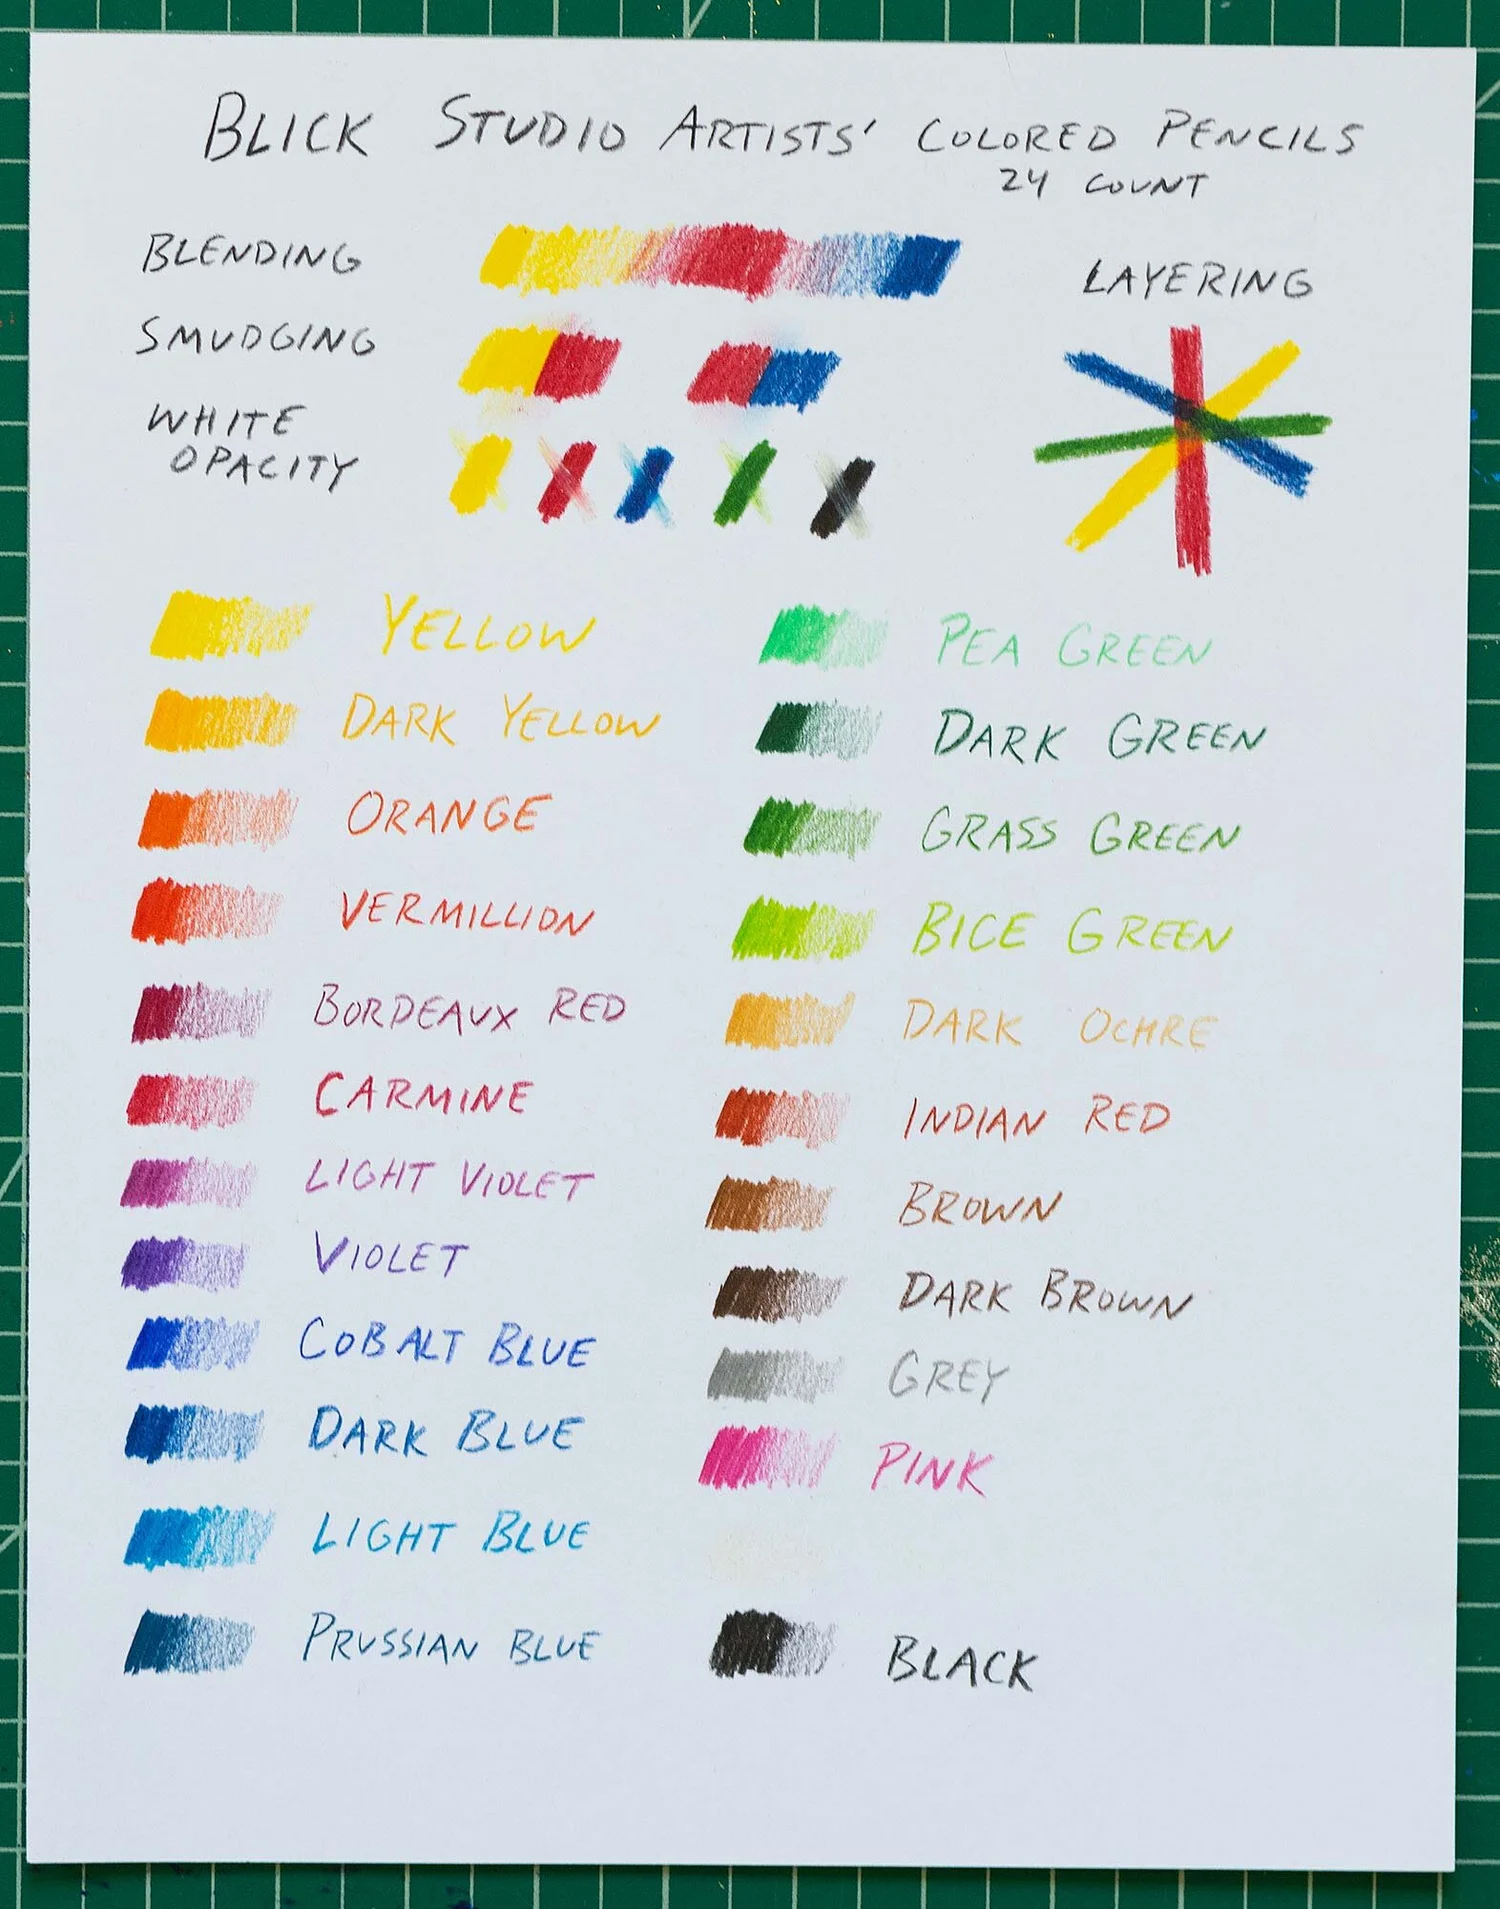 BLICK STUDIO ARTISTS' COLORED PENCILS
24 COUNT
BLENDING
LAYERING
SMUDGING
WHITE
OPACITY
YELLOW
DARK YELLOW
ORANGE
VERMILLION
BORDEAUX RED
CARMINE
LIGHT VIOLET
VIOLET
COBALT BLUE
DARK BLUE
LIGHT BLUE
PRUSSIAN BLUE
PEA GREEN
DARK GREEN
GRASS GREEN
BICE GREEN
DARK OCHRE
INDIAN RED
BROWN
DARK BROWN
GREY
PINK
BLACK